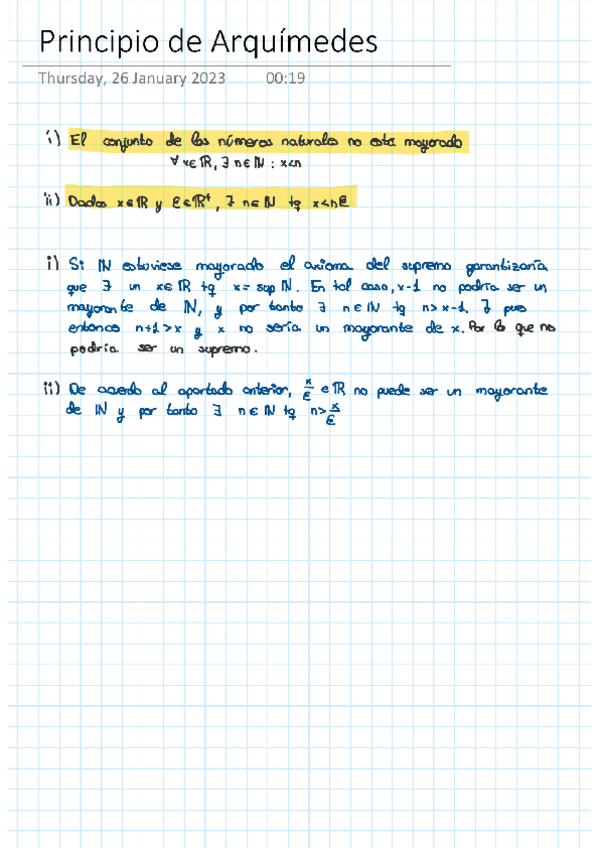 Principio de Arquímedes
Thursday, 26 January 2023 00:19
i) El conjunto de los números naturales no esta mayorado
∀ x∈ℝ, ∃ n∈ℕ : x<n
ii) Dados x∈ℝ y ε∈ℝ⁺, ∃ n∈ℕ tq x<nε
i) Si ℕ estuviese mayorado el axioma del supremo garantizaría
que ∃ un x∈ℝ tq x = sup ℕ. En tal caso, x-1 no podría ser un
mayorante de ℕ, y por tanto ∃ n∈ℕ tq n>x-1. Y pues
entonces n+1>x y x no sería un mayorante de x. Por lo que no
podría ser un supremo.
ii) De acuerdo al apartado anterior, x/ε ∈ℝ no puede ser un mayorante
de ℕ y por tanto ∃ n∈ℕ tq n> x/ε